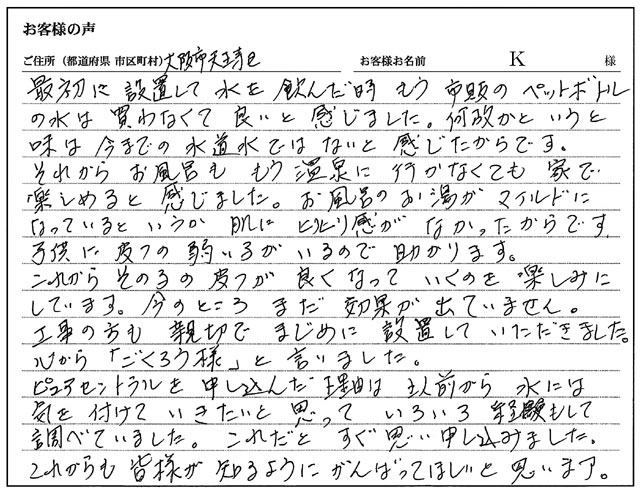 お客様の声
ご住所（都道府県 市区町村）大阪市天王寺区 お客様お名前 K 様
最初に設置して水を飲んだ時もう市販のペットボトル
の水は買わなくて良いと感じました。何故かというと
味は今までの水道水ではないと感じたからです。
それからお風呂ももう温泉に行かなくても家で
楽しめると感じました。お風呂のお湯がマイルドに
なっているというか肌にヒリヒリ感がなかったからです。
子供に皮フの弱い子がいるので助かります。
これからその子の皮フが良くなっていくのを楽しみに
しています。今のところまだ効果が出ていません。
工事の方も親切でまじめに設置していただきました。
心から「ごくろう様」と言いました。
ピュアセントラルを申し込んだ理由は以前から水には
気を付けていきたいと思っていろいろ経験もして
調べていました。これだとすぐ思い申し込みました。
これからも皆様が知るようにがんばってほしいと思います。